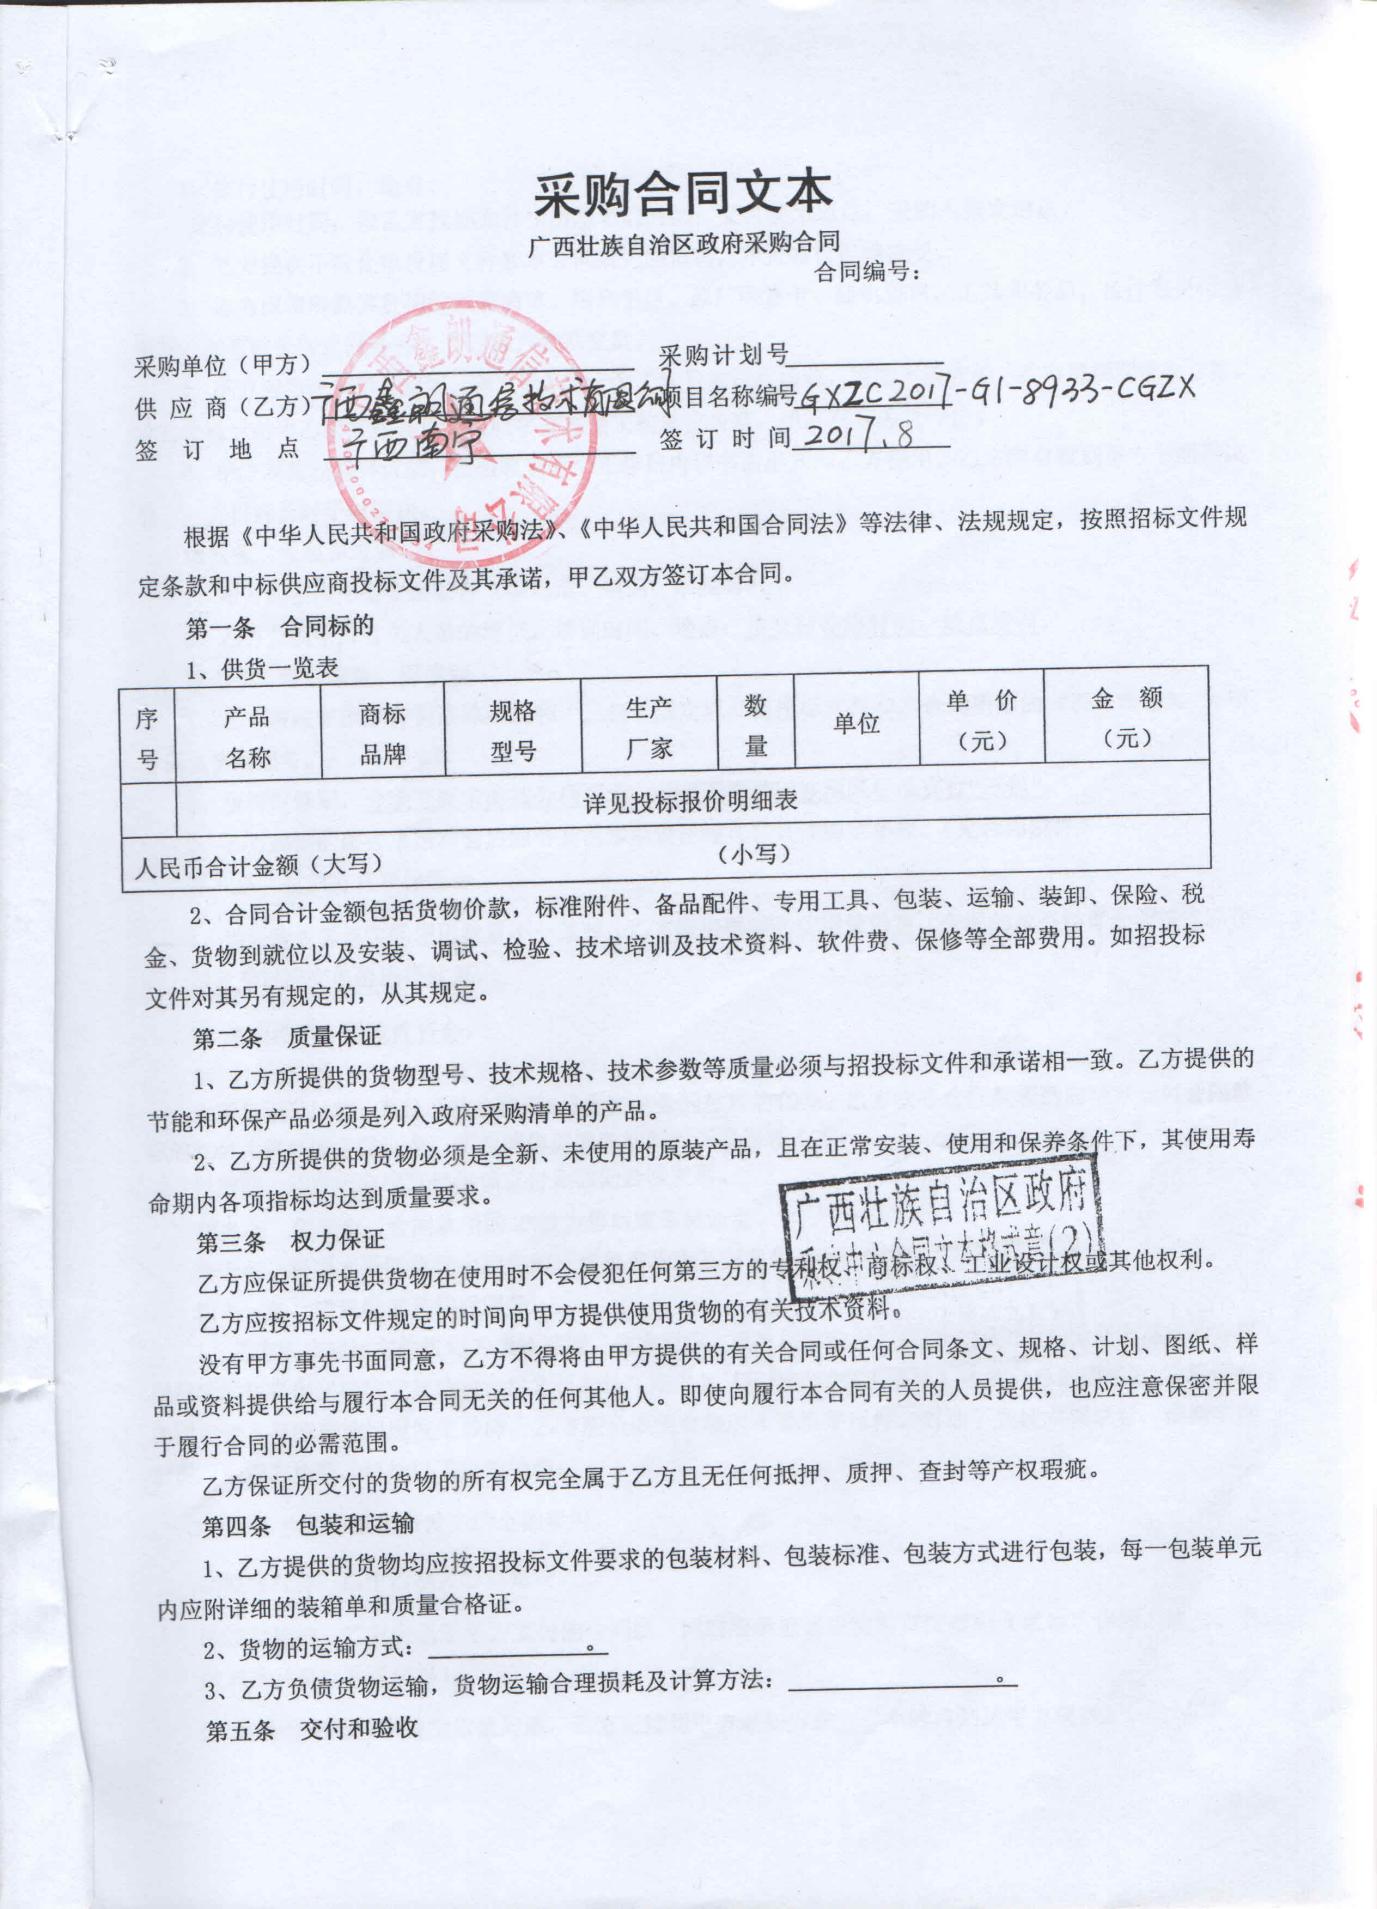 采购合同文本
广西壮族自治区政府采购合同
合同编号：
采购单位（甲方） 采购计划号
供 应 商（乙方）广西鑫朗通信技术有限公司 项目名称编号 GXZC2017-G1-8933-CGZX
签 订 地 点 广西南宁 签 订 时 间 2017.8
广西鑫朗通信技术有限公司
根据《中华人民共和国政府采购法》、《中华人民共和国合同法》等法律、法规规定，按照招标文件规
定条款和中标供应商投标文件及其承诺，甲乙双方签订本合同。
第一条 合同标的
1、供货一览表
序号 产品名称 商标品牌 规格型号 生产厂家 数量 单位 单 价（元） 金 额（元）
详见投标报价明细表
人民币合计金额（大写） （小写）
2、合同合计金额包括货物价款，标准附件、备品配件、专用工具、包装、运输、装卸、保险、税
金、货物到就位以及安装、调试、检验、技术培训及技术资料、软件费、保修等全部费用。如招投标
文件对其另有规定的，从其规定。
第二条 质量保证
1、乙方所提供的货物型号、技术规格、技术参数等质量必须与招投标文件和承诺相一致。乙方提供的
节能和环保产品必须是列入政府采购清单的产品。
2、乙方所提供的货物必须是全新、未使用的原装产品，且在正常安装、使用和保养条件下，其使用寿
命期内各项指标均达到质量要求。
广西壮族自治区政府
采购中心合同文本格式章(2)
第三条 权力保证
乙方应保证所提供货物在使用时不会侵犯任何第三方的专利权、商标权、工业设计权或其他权利。
乙方应按招标文件规定的时间向甲方提供使用货物的有关技术资料。
没有甲方事先书面同意，乙方不得将由甲方提供的有关合同或任何合同条文、规格、计划、图纸、样
品或资料提供给与履行本合同无关的任何其他人。即使向履行本合同有关的人员提供，也应注意保密并限
于履行合同的必需范围。
乙方保证所交付的货物的所有权完全属于乙方且无任何抵押、质押、查封等产权瑕疵。
第四条 包装和运输
1、乙方提供的货物均应按招投标文件要求的包装材料、包装标准、包装方式进行包装，每一包装单元
内应附详细的装箱单和质量合格证。
2、货物的运输方式： 。
3、乙方负债货物运输，货物运输合理损耗及计算方法： 。
第五条 交付和验收